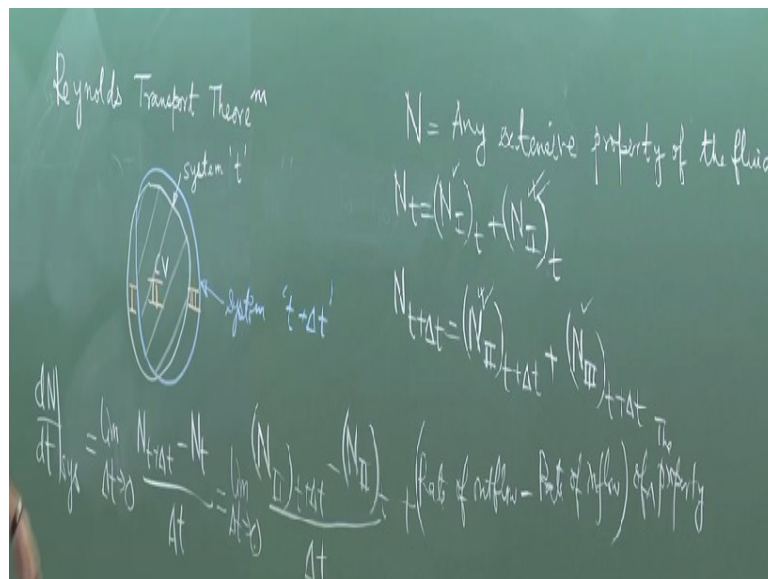 Reynolds Transport Theorem
system 't'
CV
I II III
system 't+Δt'
N = Any extensive property of the fluid
N_t = (N_I)_t + (N_II)_t
N_{t+Δt} = (N_II)_{t+Δt} + (N_III)_{t+Δt}
dN/dt|_sys = lim_{Δt→0} (N_{t+Δt} - N_t)/Δt = lim_{Δt→0} ((N_II)_{t+Δt} - (N_II)_t)/Δt + (Rate of outflow - Rate of inflow) of the property